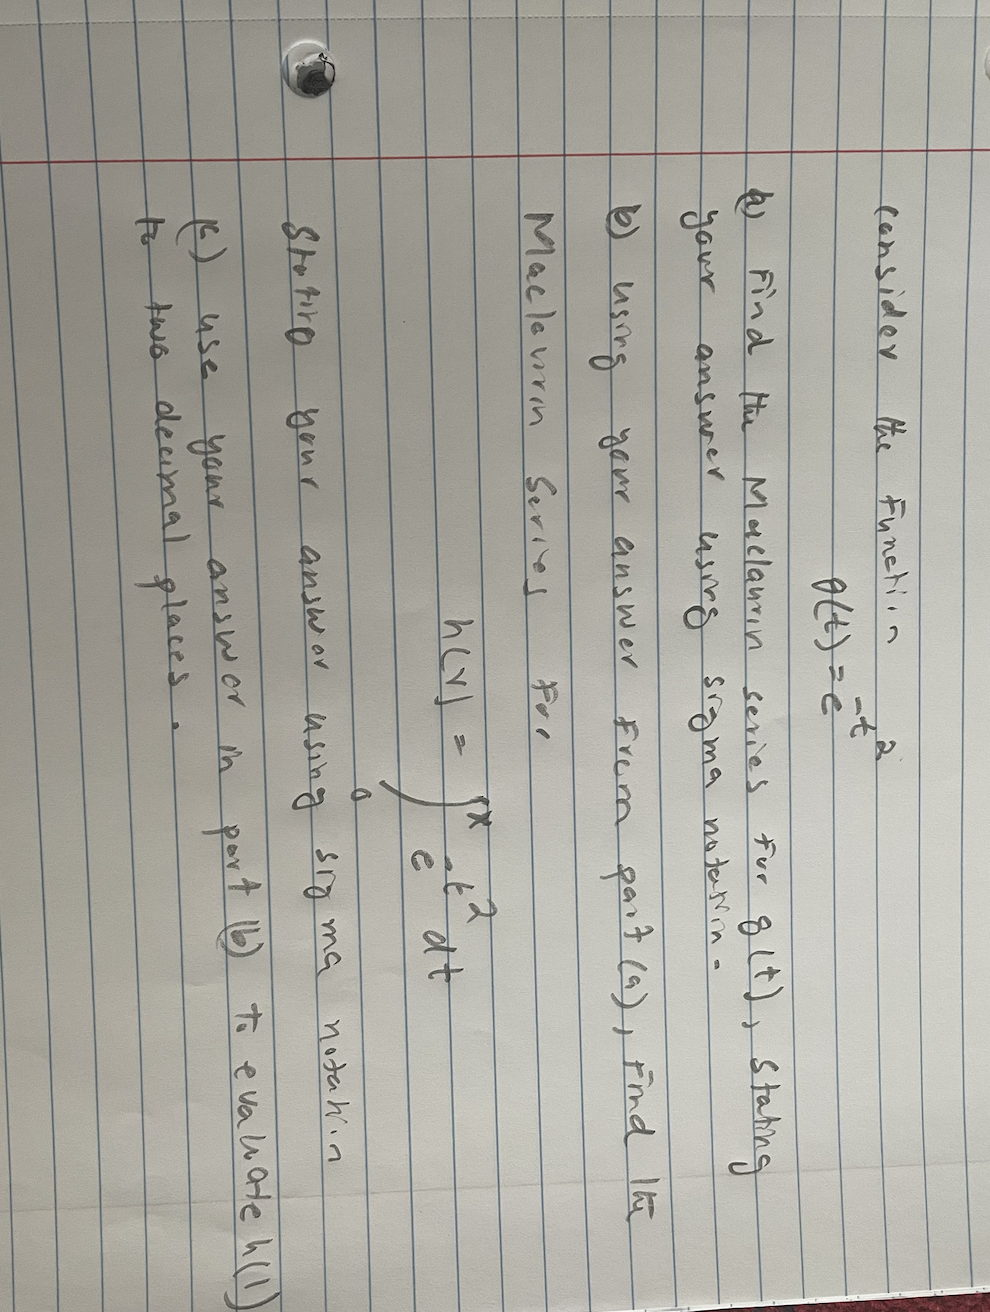 Consider the function
g(t) = e^-t^2
a) Find the Maclaurin series for g(t), stating
your answer using sigma notation.
b) using your answer from part (a), find the
Maclaurin Series for
h(x) = ∫_0^x e^-t^2 dt
Stating your answer using sigma notation
(c) use your answer in part (b) to evaluate h(1)
to two decimal places.